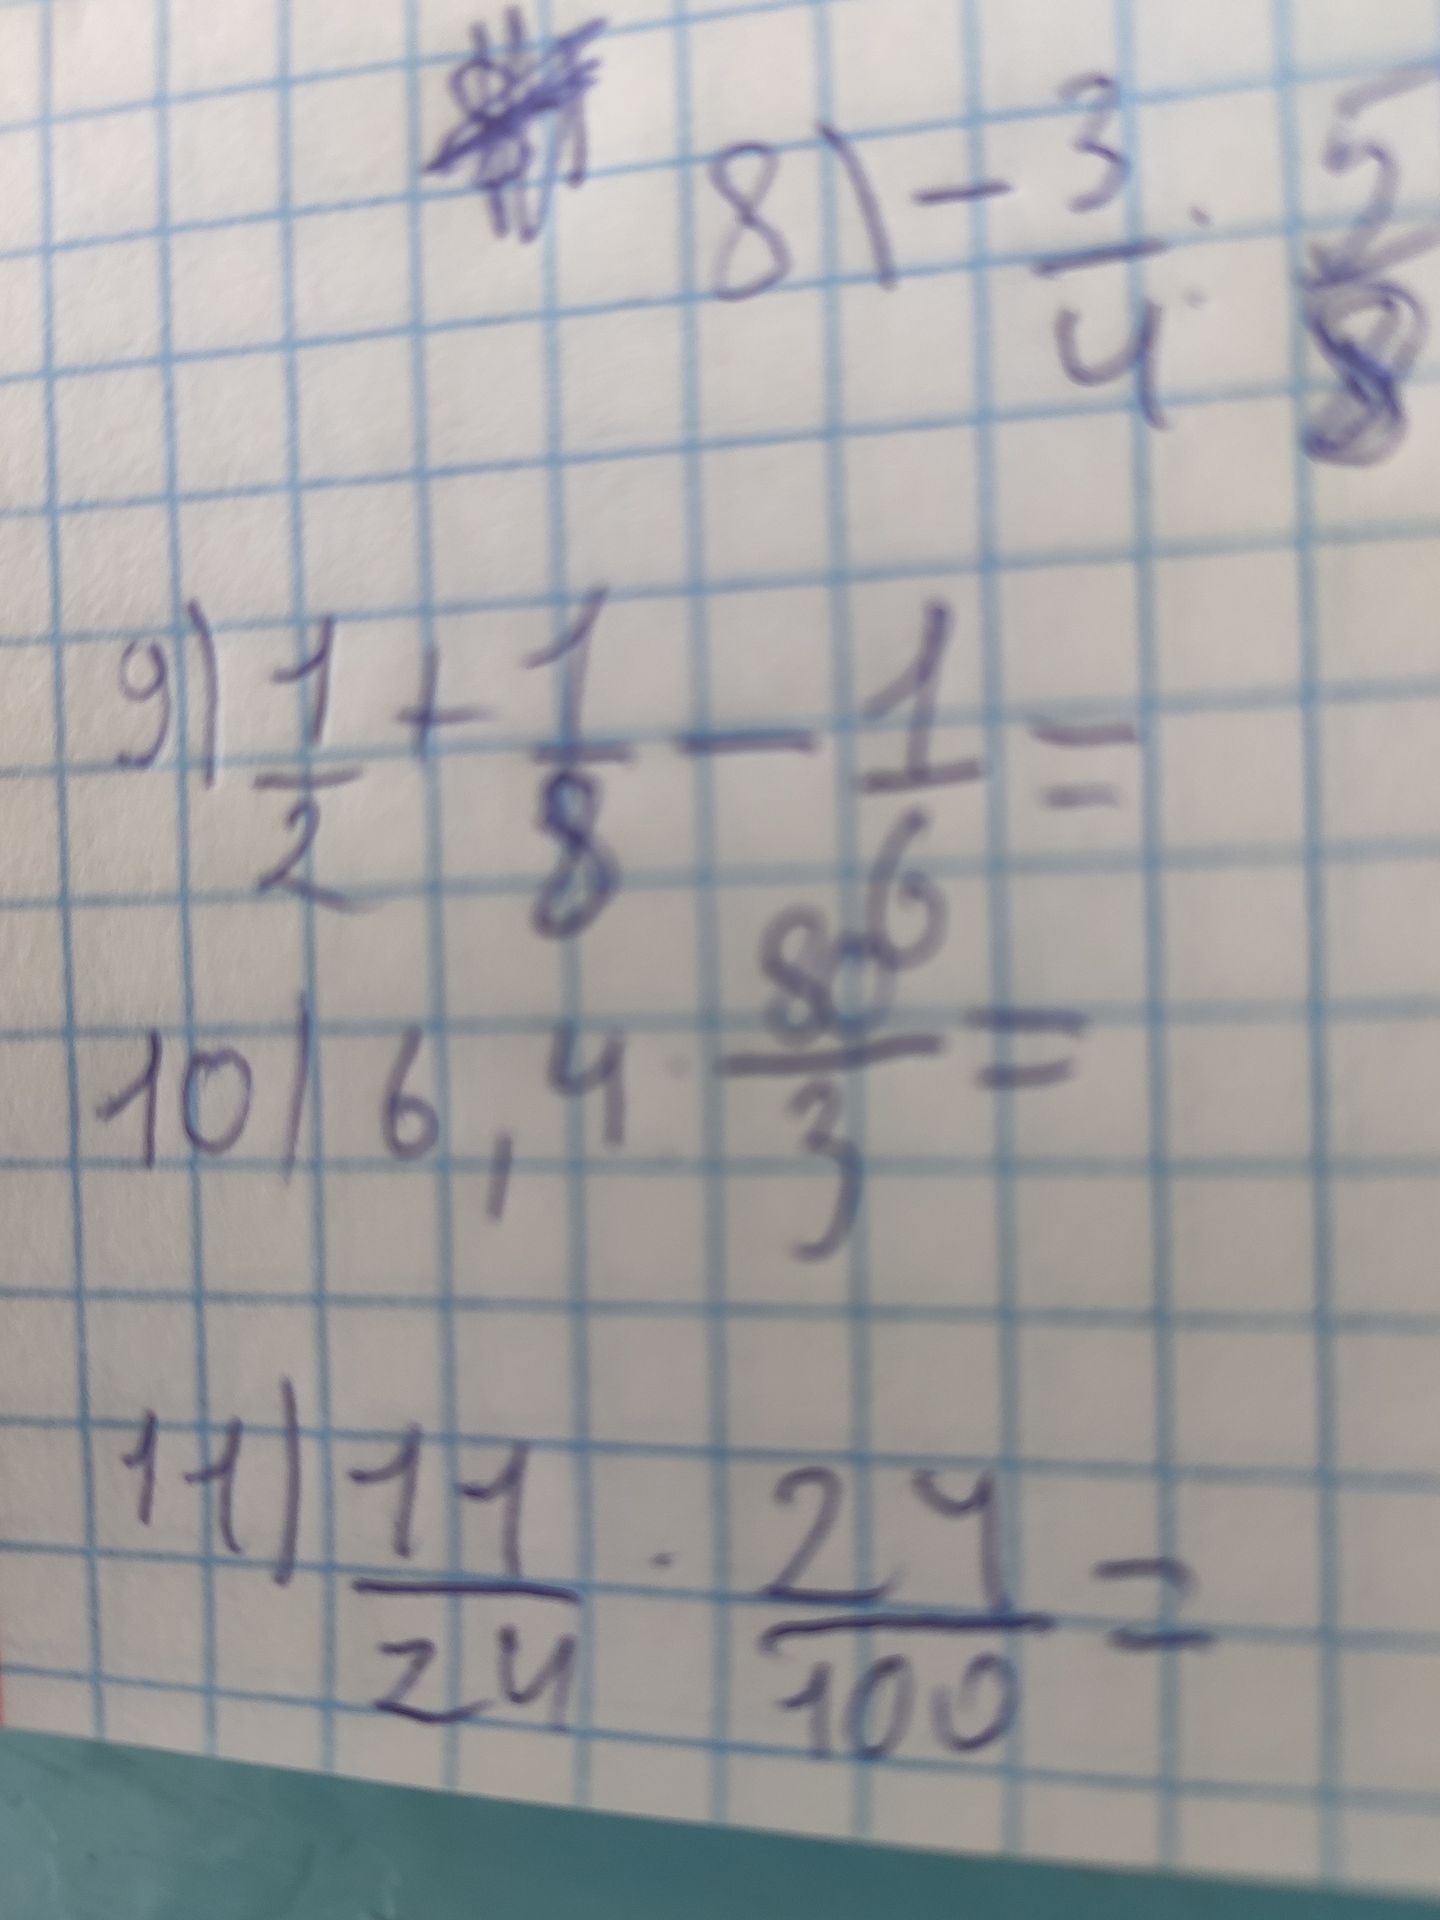 8) - 3/4 : 5/8
9) 1/2 + 1/8 - 1/6 =
10) 6,4 · 80/3 =
11) 11/24 · 24/100 =